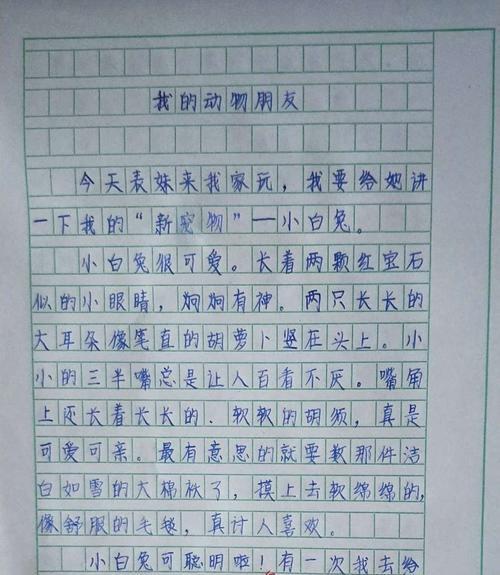 我的动物朋友
今天表妹来我家玩，我要给她讲
一下我的“新宠物”—小白兔。
小白兔很可爱。长着两颗红宝石
似的小眼睛，炯炯有神。两只长长的
大耳朵像笔直的胡萝卜竖在头上。小
小的三半嘴总是让人百看不厌。嘴角
上还长着长长的、软软的胡须，真是
可爱可亲。最有意思的就要数那件洁
白如雪的大棉袄了，摸上去软绵绵的，
像舒服的毛毯，真讨人喜欢。
小白兔可聪明啦！有一次我去给